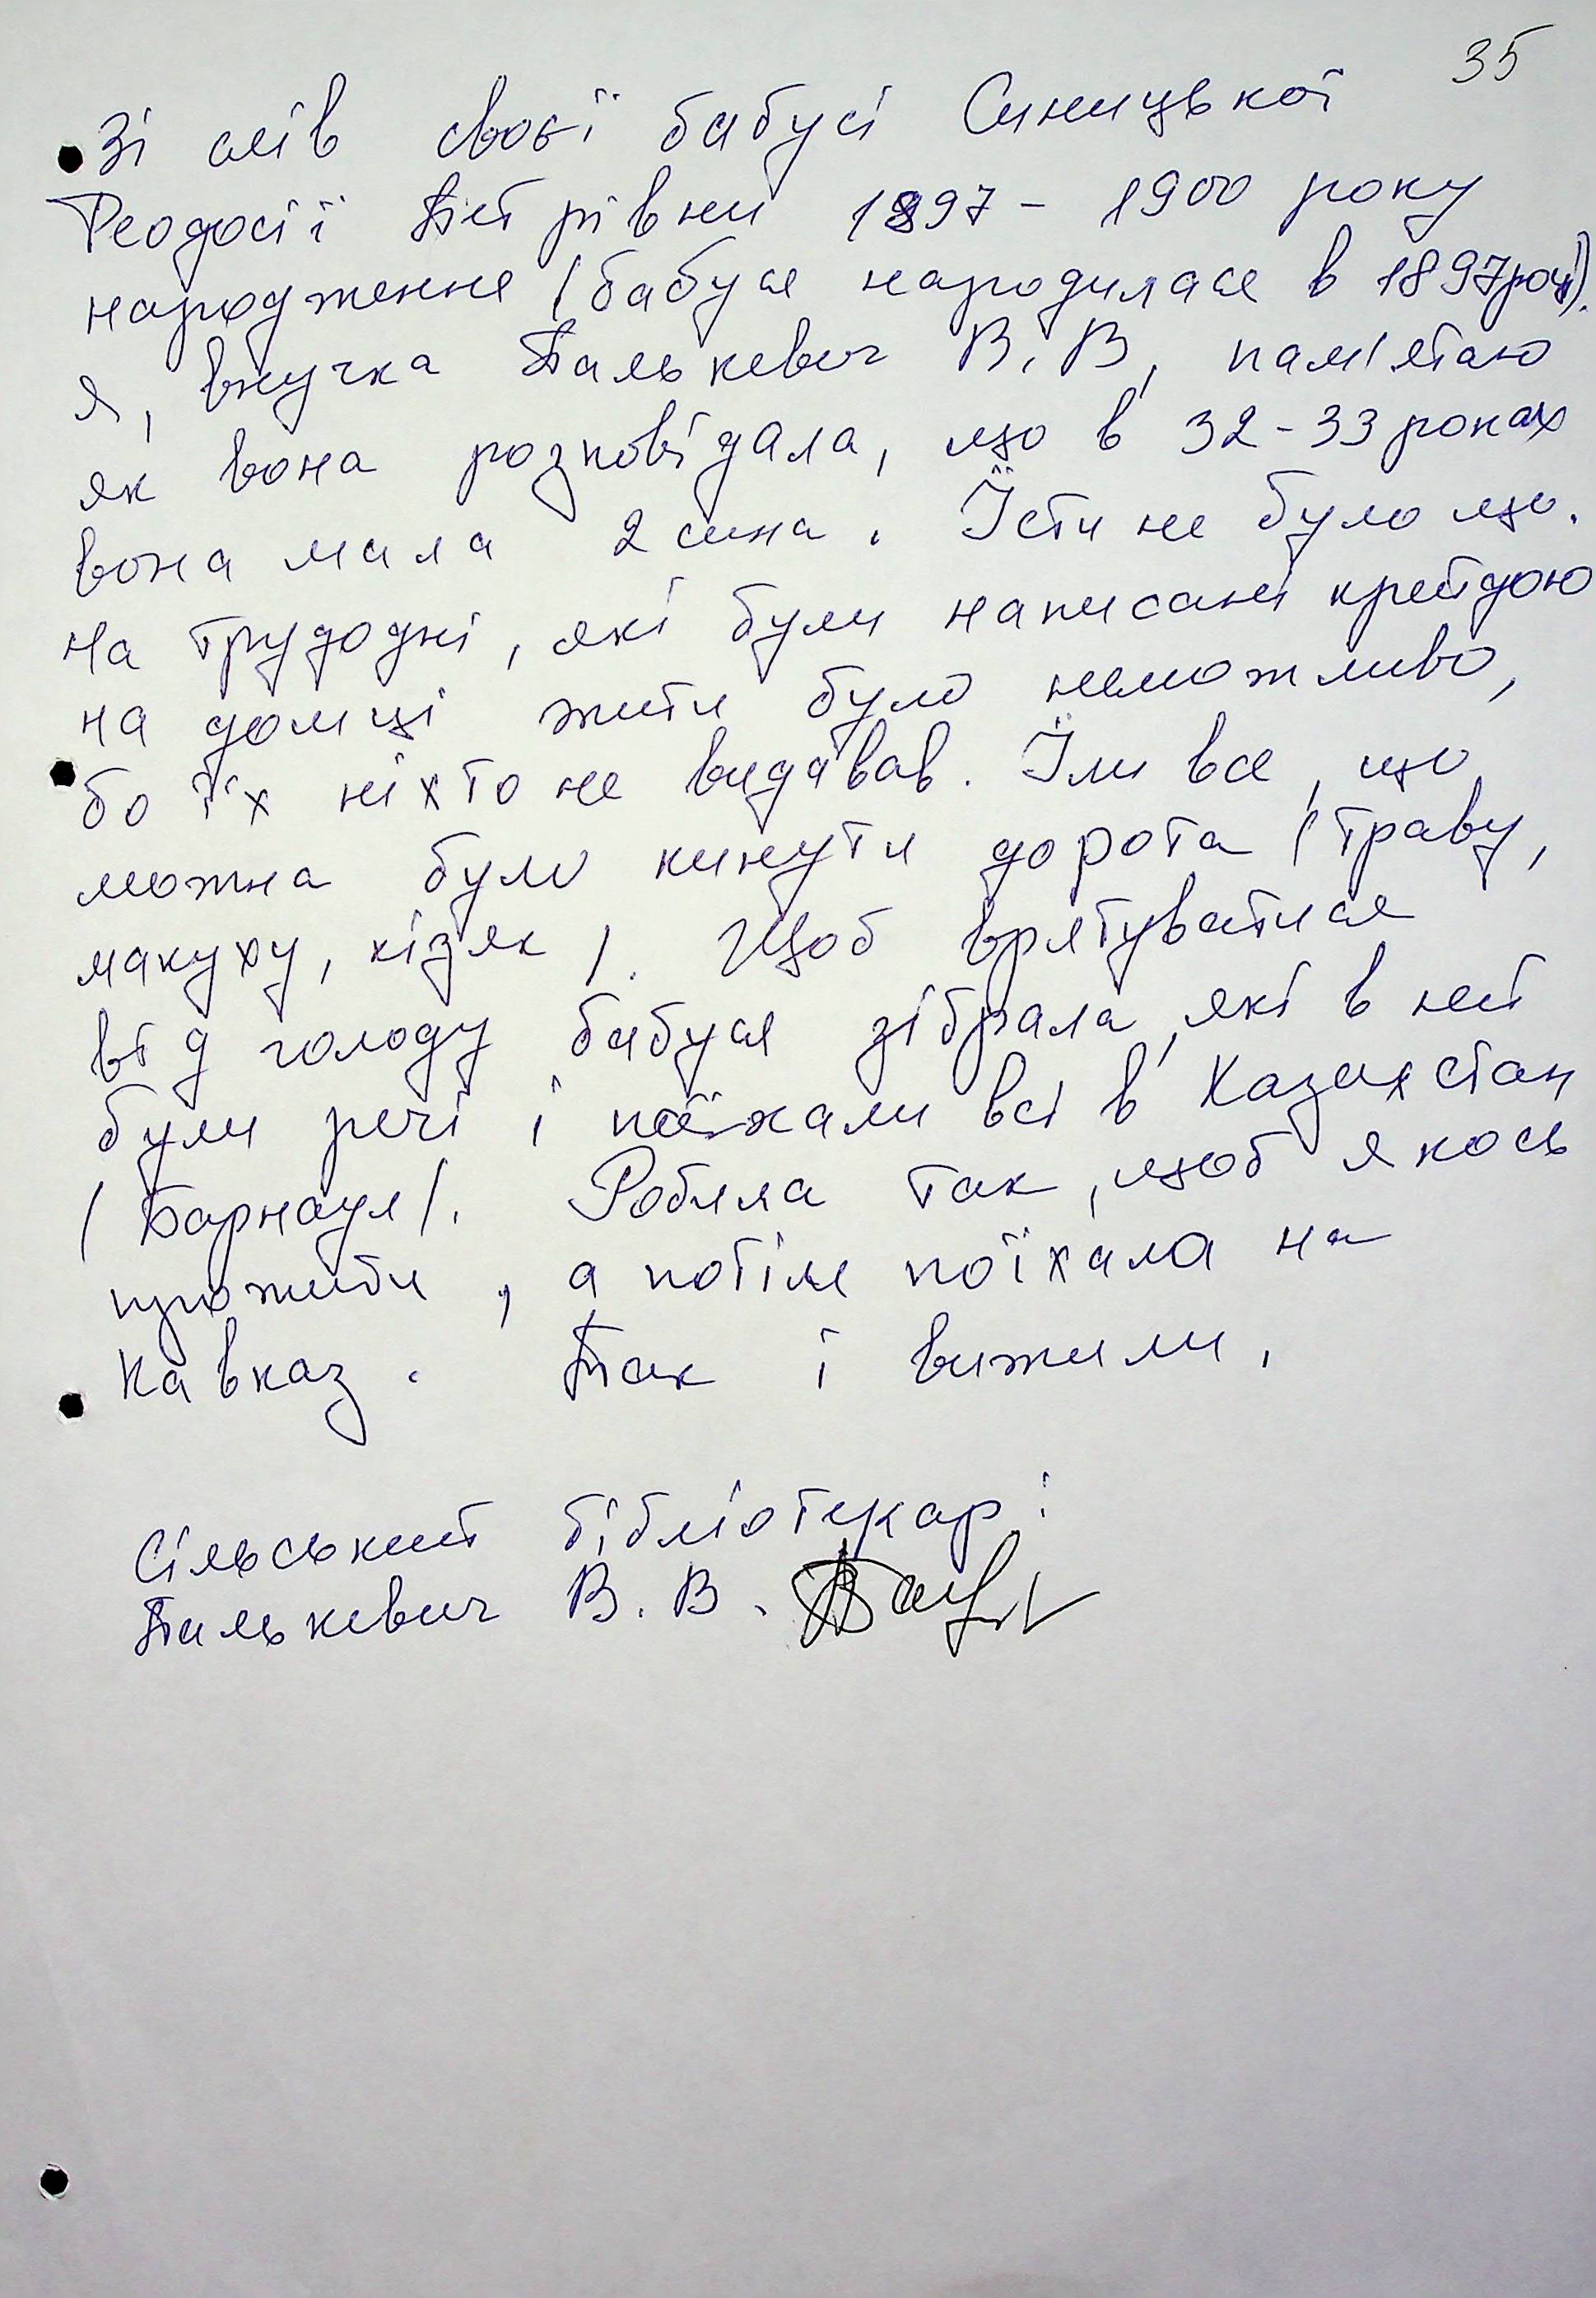 35
Зі слів своєї бабусі Синицької
Феодосії Дмитрівни 1897 - 1900 року
народження (бабуся народилася в 1897 році).
Я, внучка Палькевич В. В, пам'ятаю
як вона розповідала, що в 32 - 33 роках
вона мала 2 сина. Їсти не було що.
На трудодні, які були написані крейдою
на домці жити було неможливо,
бо їх ніхто не видавав. Їли все, що
можна було кинути до рота (траву,
макуху, кізяк). Щоб врятуватися
від голоду бабуся зібрала, які в неї
були речі і поїхали всі в Казахстан
(Барнаул). Робила так, щоб якось
прожити, а потім поїхала на
Кавказ. Так і вижили.
Сільський бібліотекар:
Палькевич В. В.